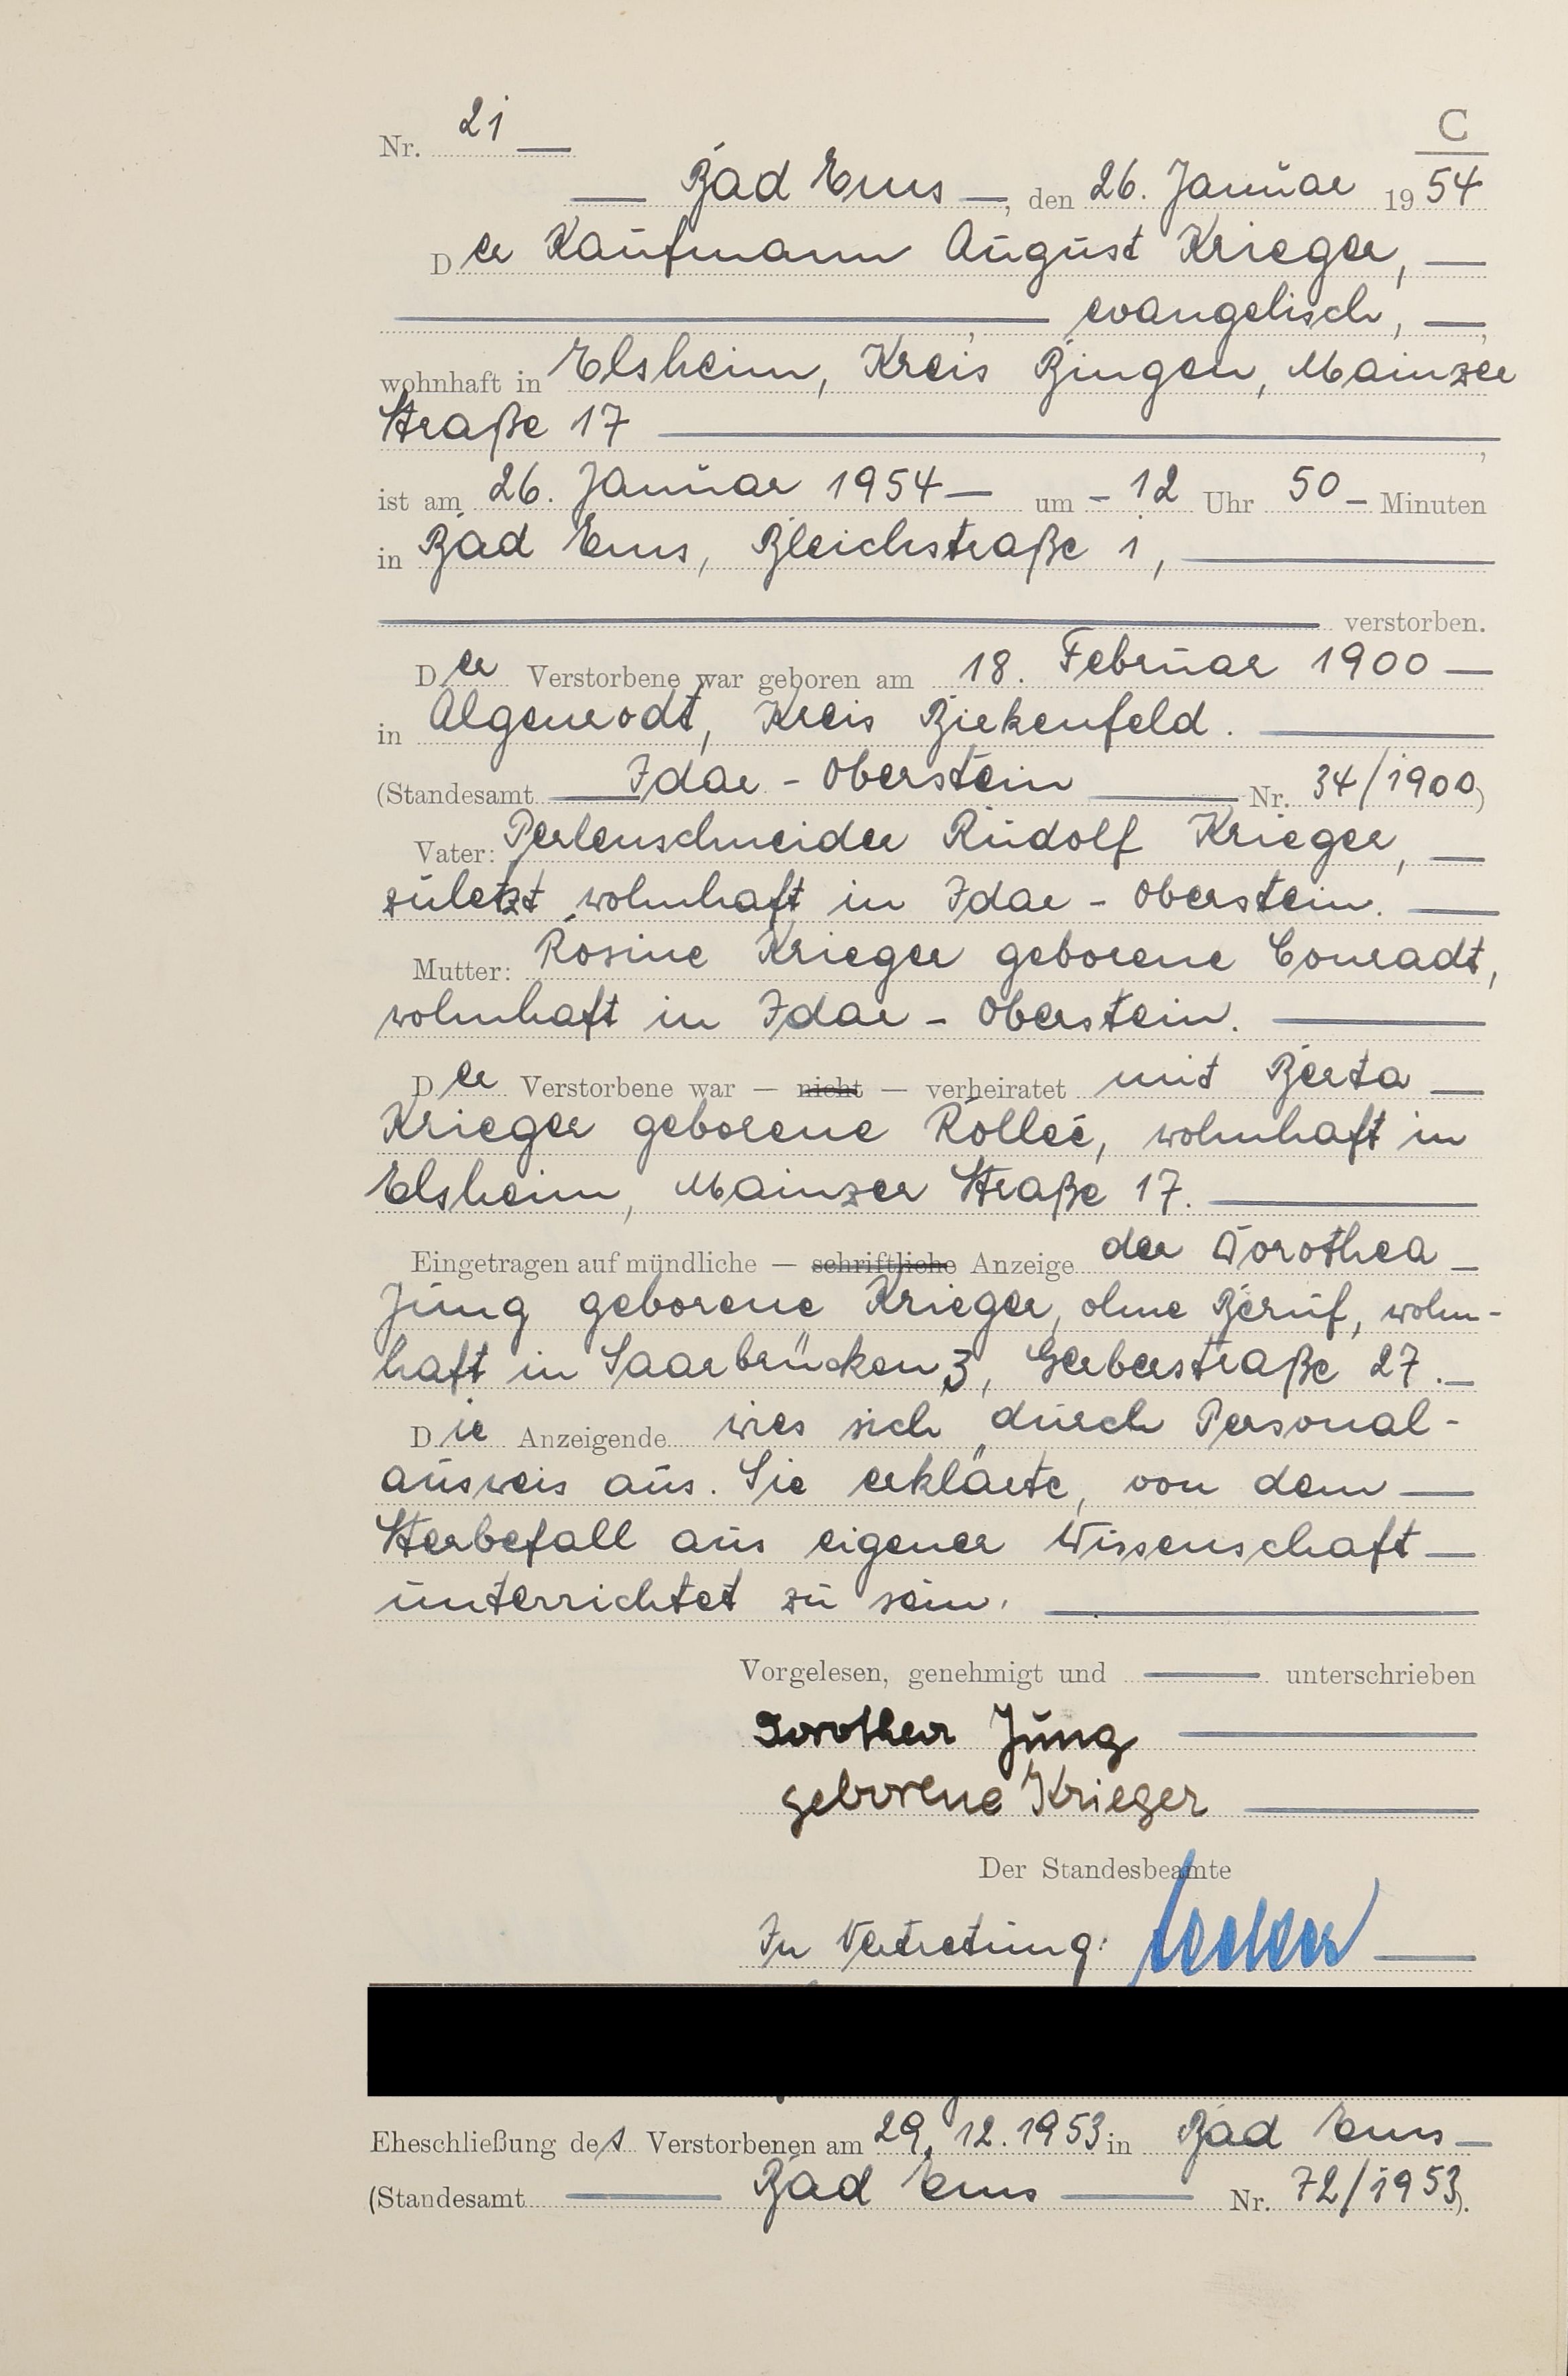 Nr. 21 —
C
— Bad Ems —, den 26. Januar 1954
Der Kaufmann August Krieger, —
—, evangelisch, —,
wohnhaft in Elsheim, Kreis Bingen, Mainzer
Straße 17 —,
ist am 26. Januar 1954 — um - 12 Uhr 50 - Minuten
in Bad Ems, Bleichstraße 1, —
— verstorben.
Der Verstorbene war geboren am 18. Februar 1900 —
in Algenrodt, Kreis Birkenfeld. —
(Standesamt — Idar - Oberstein — Nr. 34/1900)
Vater: Perlenschneider Rudolf Krieger, —
zuletzt wohnhaft in Idar - Oberstein. —
Mutter: Rosine Krieger geborene Conradt,
wohnhaft in Idar - Oberstein. —
Der Verstorbene war — nicht — verheiratet mit Berta —
Krieger geboreneРолleé, wohnhaft in
Elsheim, Mainzer Straße 17. —
Eingetragen auf mündliche — schriftliche Anzeige der Dorothea —
Jung geborene Krieger, ohne Beruf, wohn-
haft in Saarbrücken 3, Gerberstraße 27. —
Die Anzeigende wies sich durch Personal-
ausweis aus. Sie erklärte, von dem —
Sterbefall aus eigener Wissenschaft —
unterrichtet zu sein. —
Vorgelesen, genehmigt und — unterschrieben
Dorothea Jung —
geborene Krieger —
Der Standesbeamte
In Vertretung: —
Eheschließung des Verstorbenen am 29. 12. 1953 in Bad Ems —
(Standesamt — Bad Ems — Nr. 72/1953).